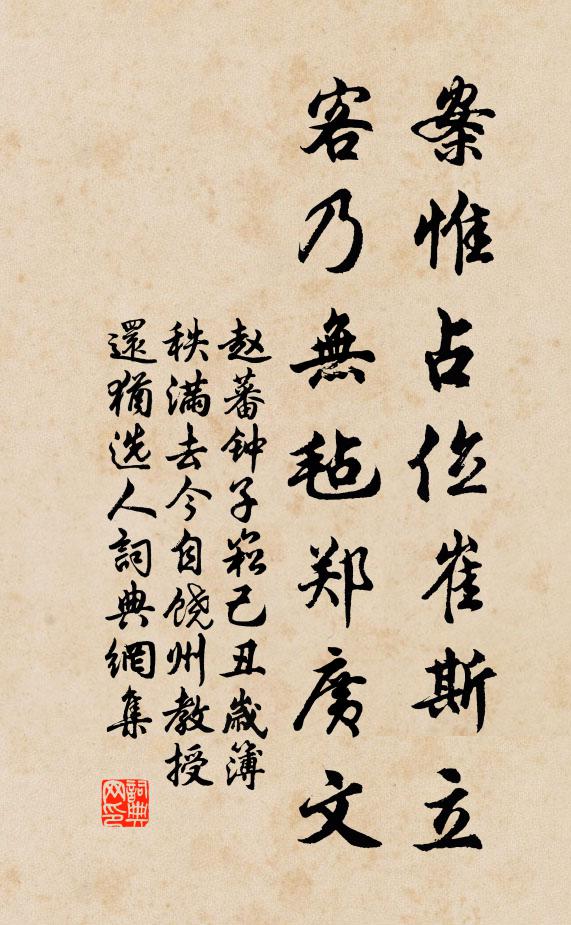 案惟占位崔斯立
客乃無毡郑廣文
赵蕃钟子崧己丑歲簿
秩满去今自饶州教授
還猶选人詞典網集
詞典网印